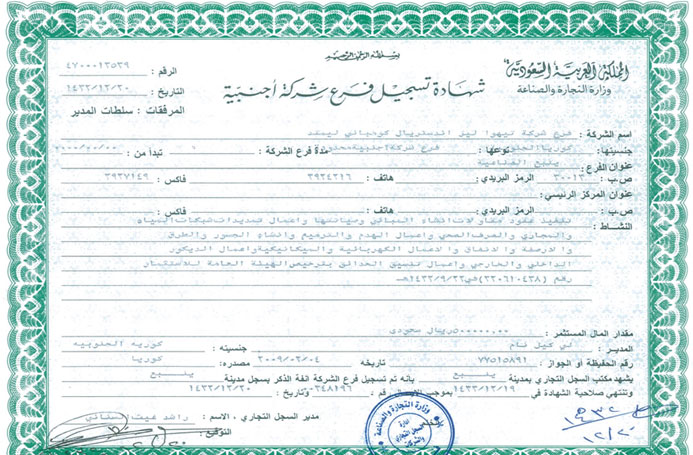 بسم الله الرحمن الرحيم
المملكة العربية السعودية
وزارة التجارة والصناعة
شهادة تسجيل فرع شركة أجنبية
الرقم : ٤٧٠٠٠١٣٥٣٩
التاريخ : ١٤٣٢/١٢/٢٠
المرفقات : سلطات المدير
اسم الشركة : فرع شركة نيهوا ليز اندستريال كومباني ليمتد
جنسيتها : كوريا الجنوبية نوعها : فرع شركة اجنبية مدة فرع الشركة : تبدأ من : ٠٠٠٠/٠٠/٠٠
عنوان الفرع : ينبع الصناعية
ص.ب : ٣٠٠١٣ الرمز البريدي : هاتف : ٣٩٢٤٣١٦ فاكس : ٣٩٣٧١٤٩
عنوان المركز الرئيسي :
ص.ب : الرمز البريدي : هاتف : فاكس :
النشاط : تنفيذ عقود مقاولات انشاء المباني وصيانتها واعمال تمديدات شبكات المياه
والمجاري والصرف الصحي واعمال الهدم والترميم وانشاء الجسور والطرق
والارصفة والانفاق والاعمال الكهربائية والميكانيكية واعمال الديكور
الداخلي والخارجي واعمال تنسيق الحدائق بترخيص الهيئة العامة للاستثمار
رقم (٣٢٠٦١٠٤٣٨) في ١٤٣٢/٩/٢٢هـ
مقدار المال المستثمر : ٥٠٠٠٠٠,٠٠ ريال سعودي
المدير : لي كيل نام جنسيته : كوريه الجنوبيه
رقم الحفيظة أو الجواز : ٧٧٥١٥٨٩١ تاريخه ٢٠٠٩/٠٢/٠٤ مصدره : كوريا
يشهد مكتب السجل التجاري بمدينة ينبع بأنه تم تسجيل فرع الشركة الفة الذكر بسجل مدينة ينبع
وتنتهي صلاحية الشهادة في ١٤٣٣/١٢/١٩ بموجب رقم ٠٣٤٨١٩٦ وتاريخ : ١٤٣٢/١٢/٢٠
مدير السجل التجاري ، الاسم :
التوقيع :
وزارة التجارة والصناعة
السجل التجاري
١٤٣٢
١٢/٢٠